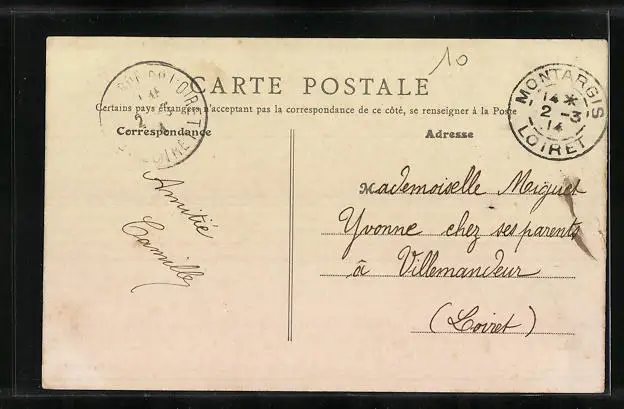 10
CARTE POSTALE
Certains pays étrangers n'acceptant pas la correspondance de ce côté, se renseigner à la Poste
Correspondance
Adresse
MONTARGIS
14 *
2 -3
14
LOIRET
Amitié
Camille
Mademoiselle Miguet
Yvonne chez ses parents
à Villemandeur
(Loiret)